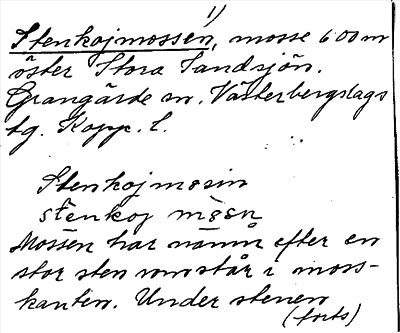 1)
Stenkojmossen, mosse 600 m
öster Stora Sandsjön.
Grangärde sn. Västerbergslags
tg. Kopp. l.
Stenkojmosin
stenkoj mosen
Mossen har namn efter en
stor sten som står i moss-
kanten. Under stenen
(forts)